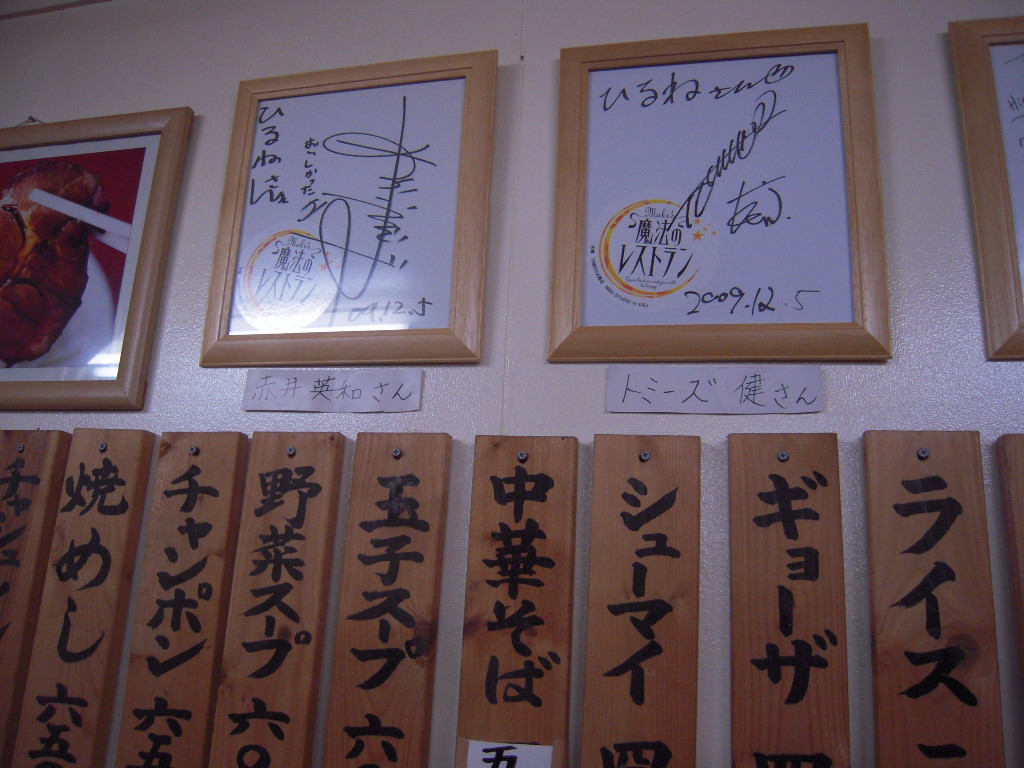 ひるねさん
おこしかたの
09.12.5
Maki's
魔法の
レストラン
ひるねさん
2009.12.5
Maki's
魔法の
レストラン
赤井 英和さん
トミーズ 健さん
チャーシュー
焼めし 六五
チャンポン 六五
野菜スープ 六〇
玉子スープ 六〇
中華そば 五
シューマイ 四
ギョーザ 四
ライス 二